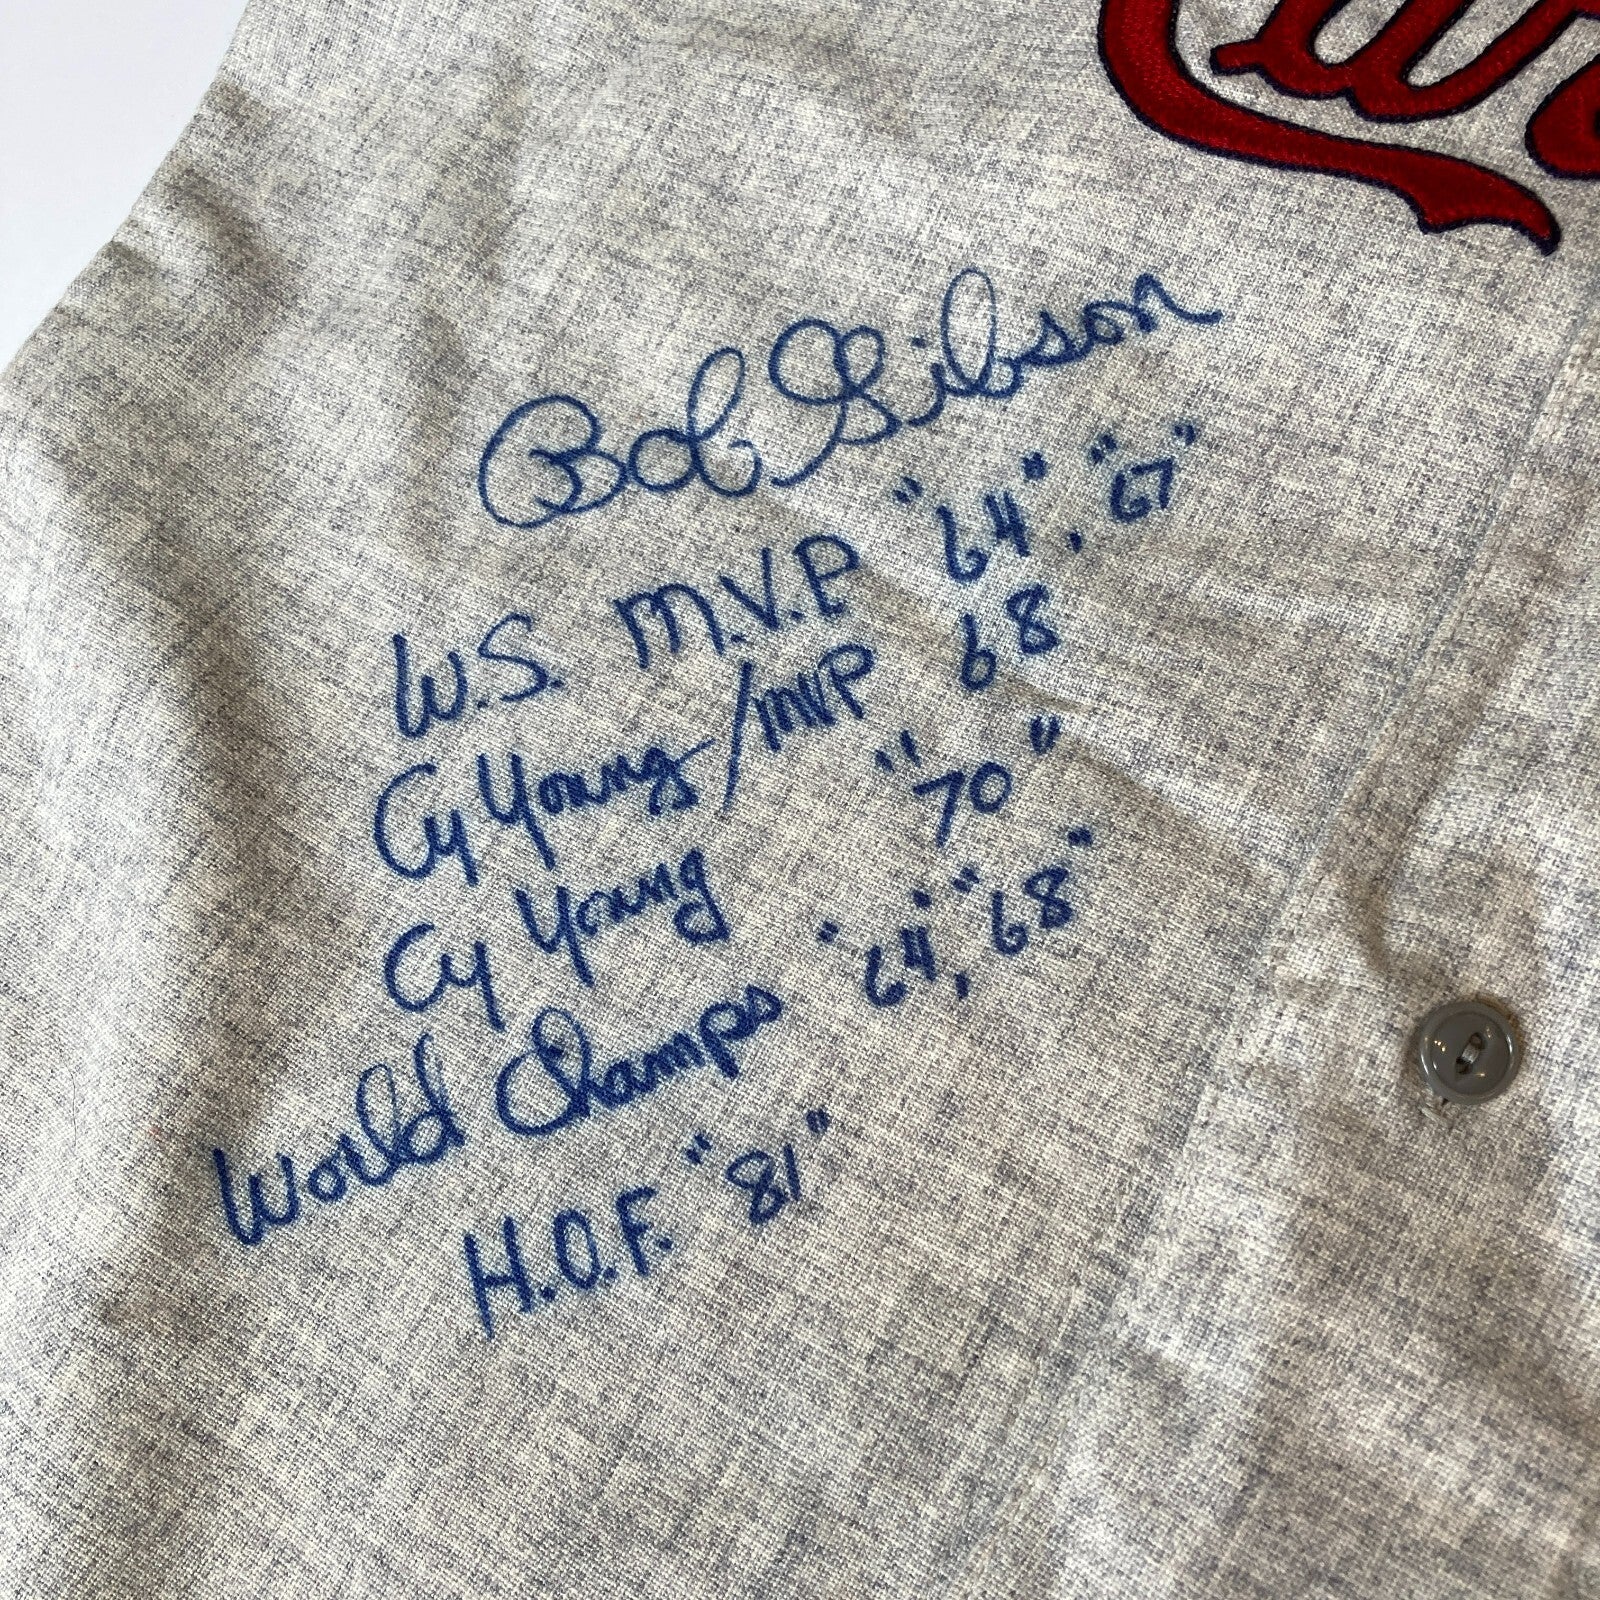 Bob Gibson
W.S. M.V.P "64", "67"
Cy Young/MVP 68
Cy Young "70"
World Champs "64", "68"
H.O.F. "81"